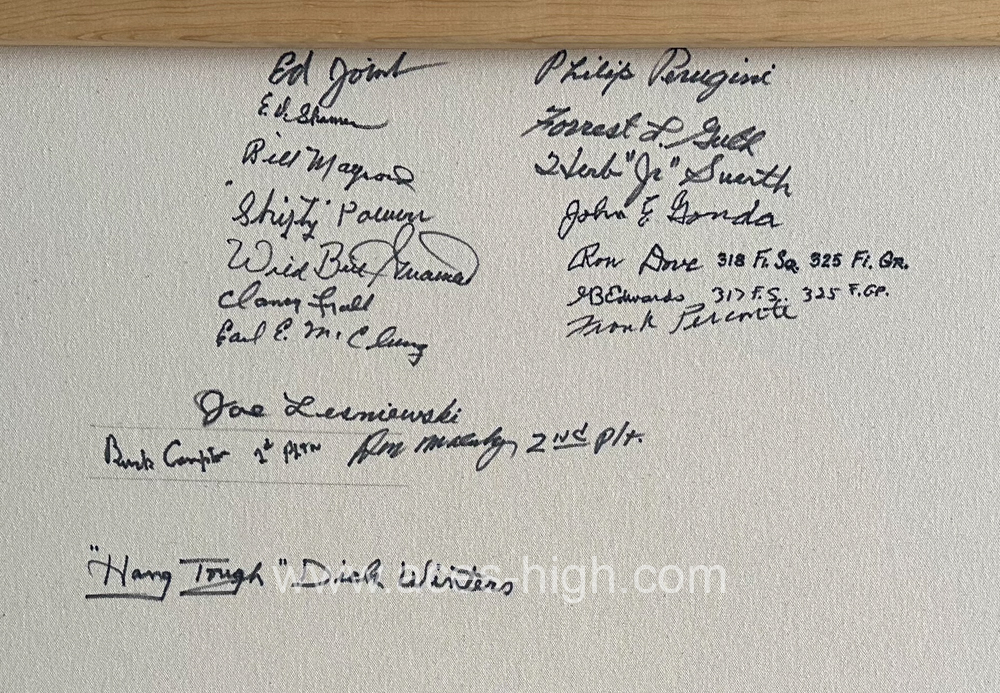 Ed Joint
E. D. Shames
Bill Maynard
"Shifty" Powers
Wild Bill Guarnere
Clancy Lyall
Earl E. McClung
Philip Perugini
Forrest L. Guth
Herb "Jr" Suerth
John E Gonda
Ron Dove 318 Ft. Sq. 325 Ft. Gr.
Edwards 317 F.S. 325 F.GP.
Frank Perconte
Joe Lesniewski
Buck Compton 2d PLTN
Don Malarkey 2ND Plt.
"Hang Tough" Dick Winters
www.aces-high.com